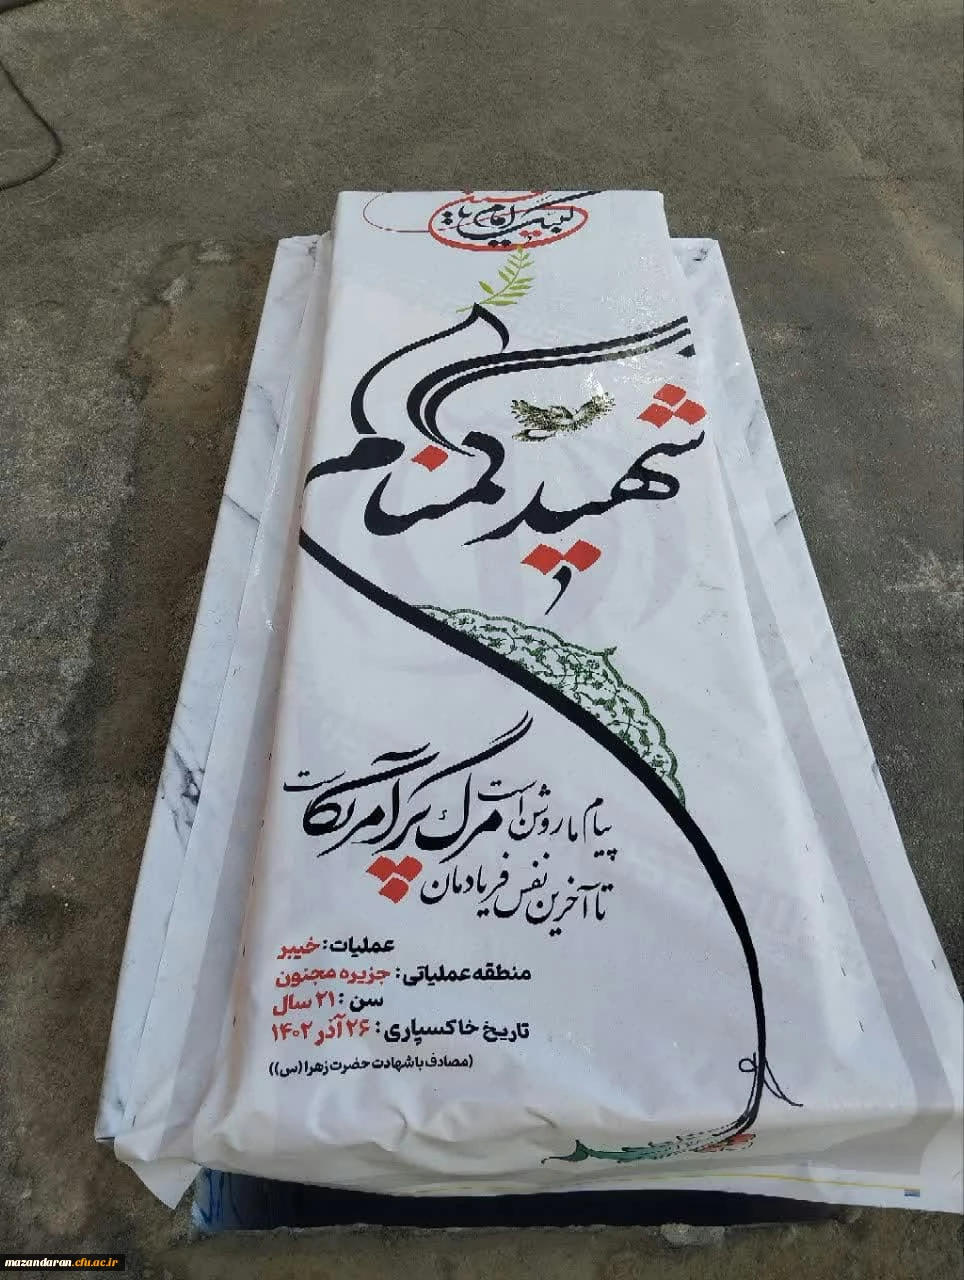 لبیک یا امام
شهید گمنام
پیام ما روشن است مرگ بر آمریکاست
تا آخرین نفس فریادمان
عملیات: خیبر
منطقه عملیاتی: جزیره مجنون
سن: ۲۱ سال
تاریخ خاکسپاری: ۲۶ آذر ۱۴۰۲
(مصادف با شهادت حضرت زهرا (س))
mazandaran.cfu.ac.ir